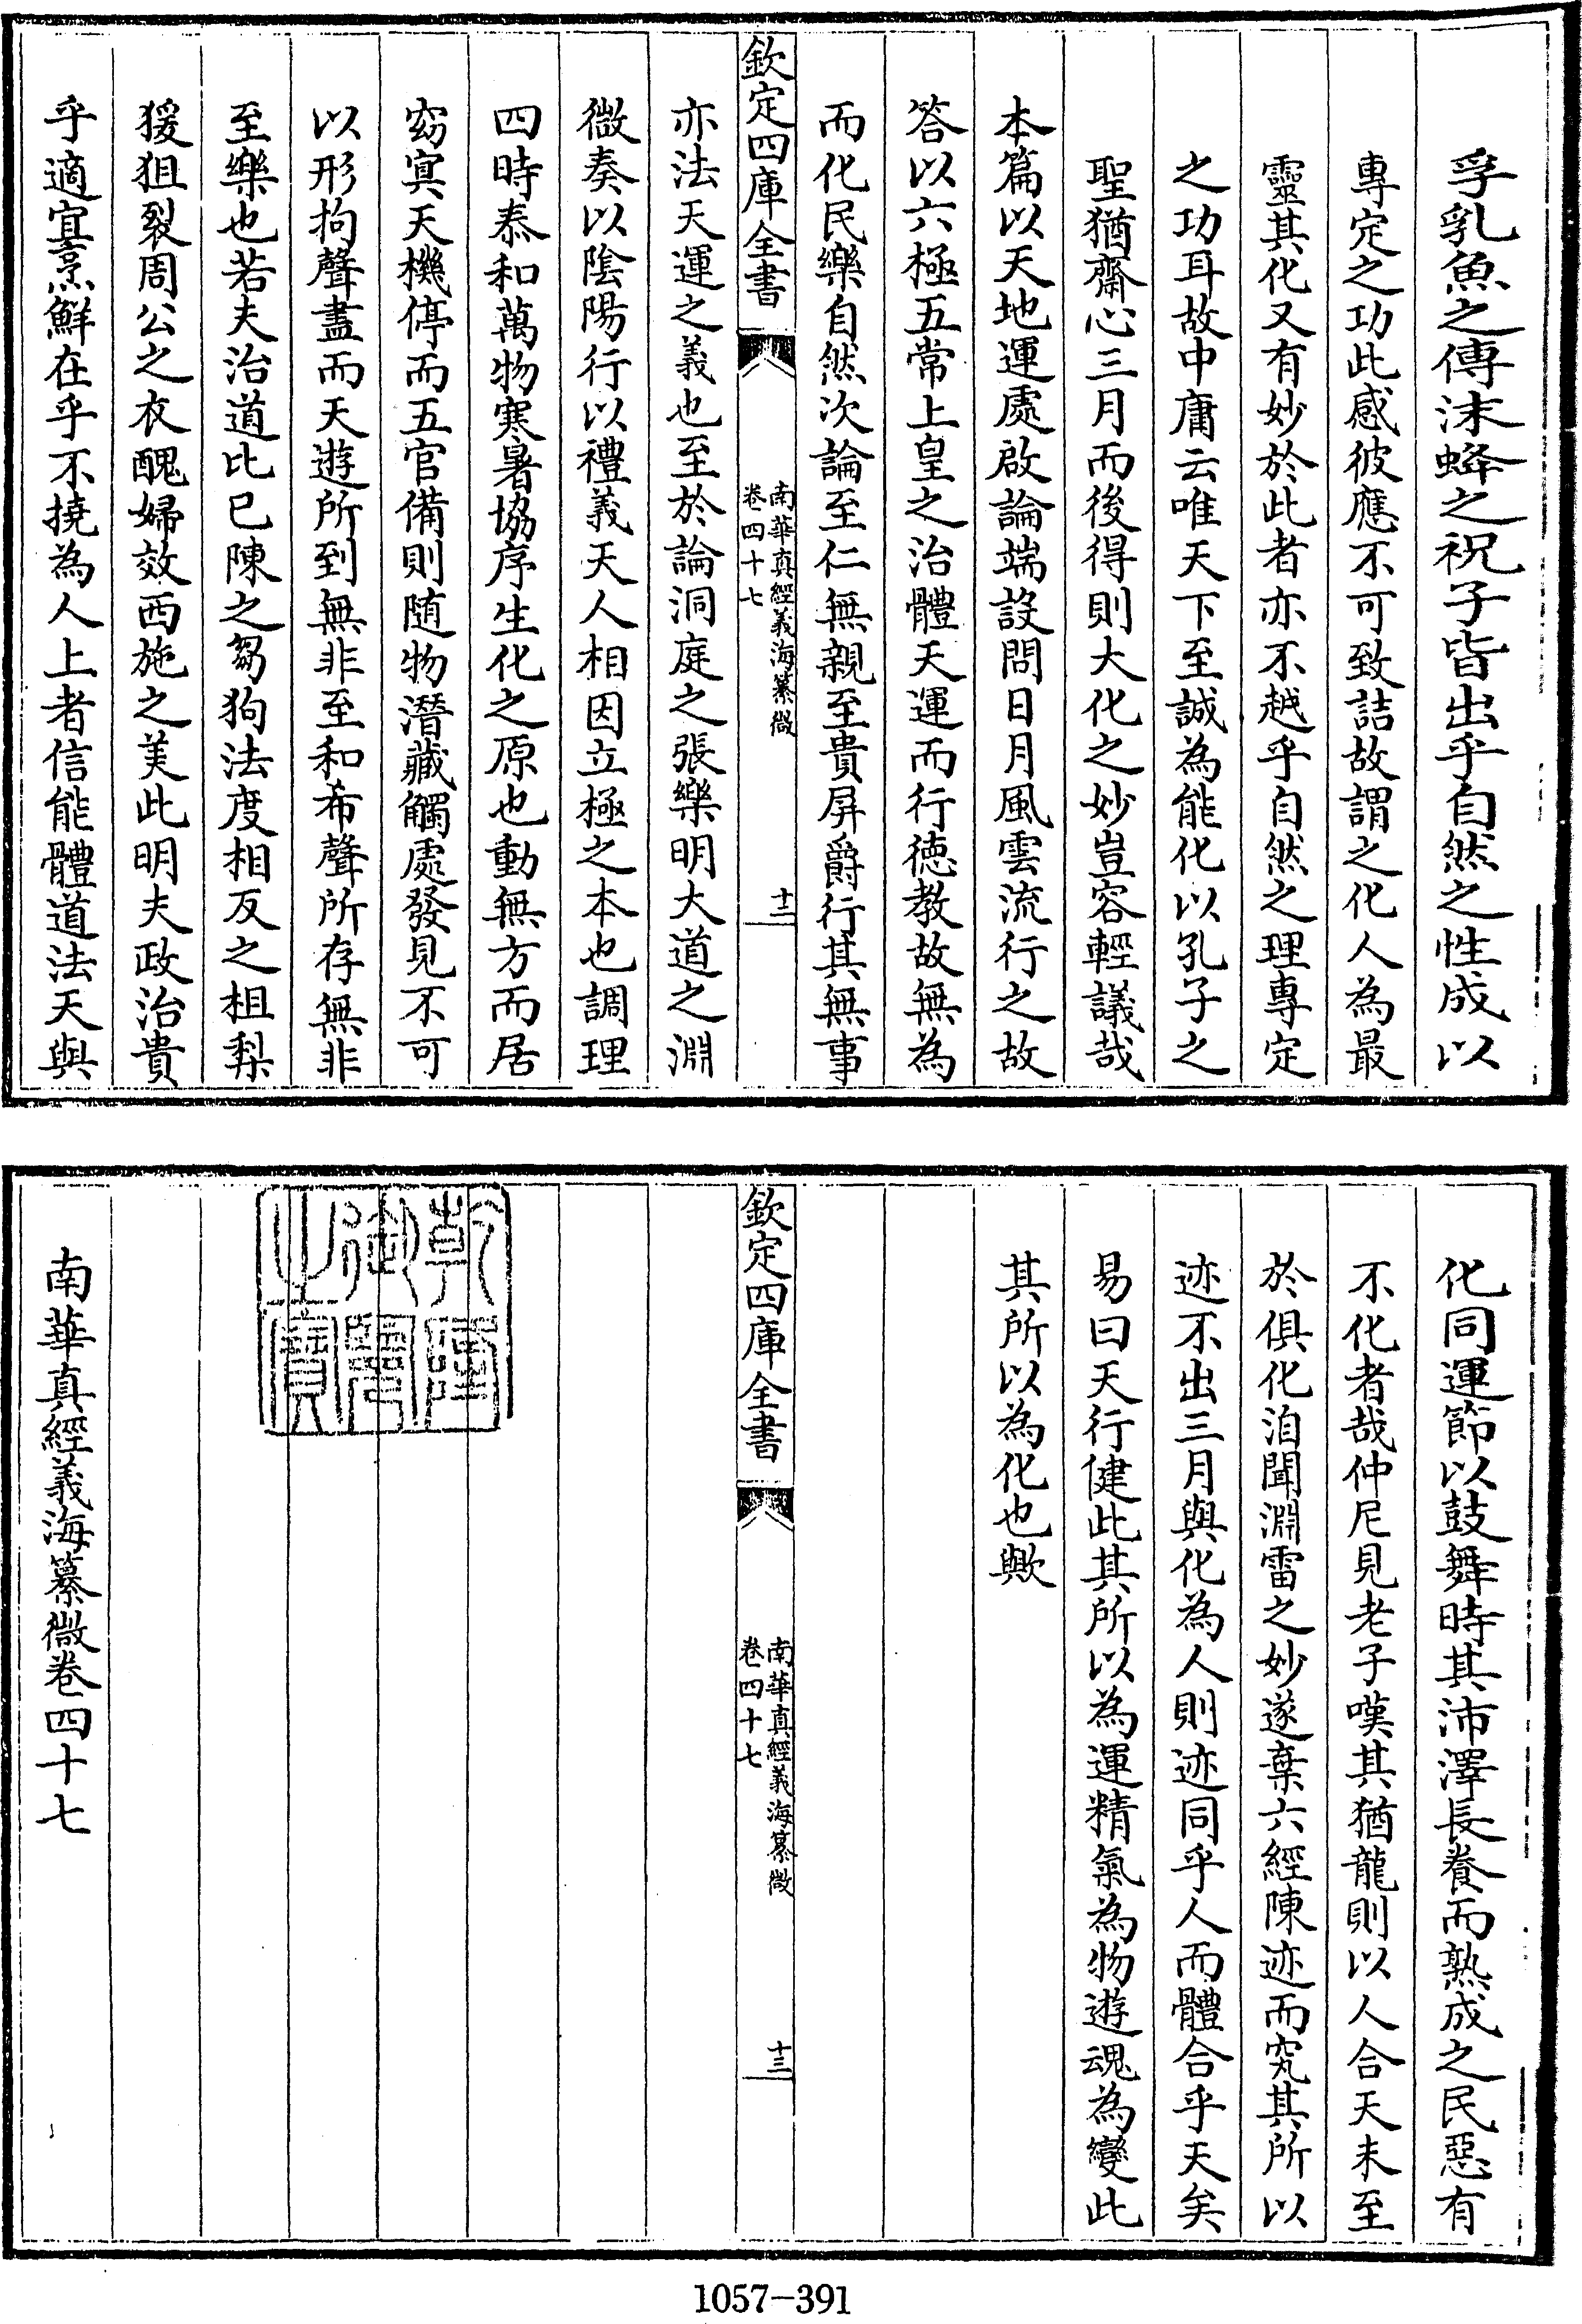 孚乳魚之傳沫蜂之祝子皆出乎自然之性成以
專定之功此感彼應不可致詰故謂之化人為最
靈其化又有妙於此者亦不越乎自然之理專定
之功耳故中庸云唯天下至誠為能化以孔子之
聖猶齋心三月而後得則大化之妙豈容輕議哉
本篇以天地運處啟論端設問日月風雲流行之故
答以六極五常上皇之治體天運而行徳教故無為
而化民樂自然次論至仁無親至貴屏爵行其無事
欽定四庫全書
南華真經義海纂微
卷四十七
十二
亦法天運之義也至於論洞庭之張樂明大道之淵
微奏以陰陽行以禮義天人相因立極之本也調理
四時泰和萬物寒暑協序生化之原也動無方而居
窈冥天機停而五官備則随物潛藏觸處發見不可
以形拘聲盡而天遊所到無非至和希聲所存無非
至樂也若夫治道比已陳之芻狗法度相反之柤梨
猨狙裂周公之衣醜婦效西施之美此明夫政治貴
乎適宜烹鮮在乎不撓為人上者信能體道法天與
化同運節以鼓舞時其沛澤長養而熟成之民惡有
不化者哉仲尼見老子嘆其猶龍則以人合天未至
於俱化洎聞淵雷之妙遂棄六經陳迹而究其所以
迹不出三月與化為人則迹同乎人而體合乎天矣
易曰天行健此其所以為運精氣為物遊魂為變此
其所以為化也歟
欽定四庫全書
南華真經義海纂微
卷四十七
十三
乾隆御覽之寶
南華真經義海纂微卷四十七
1057-391